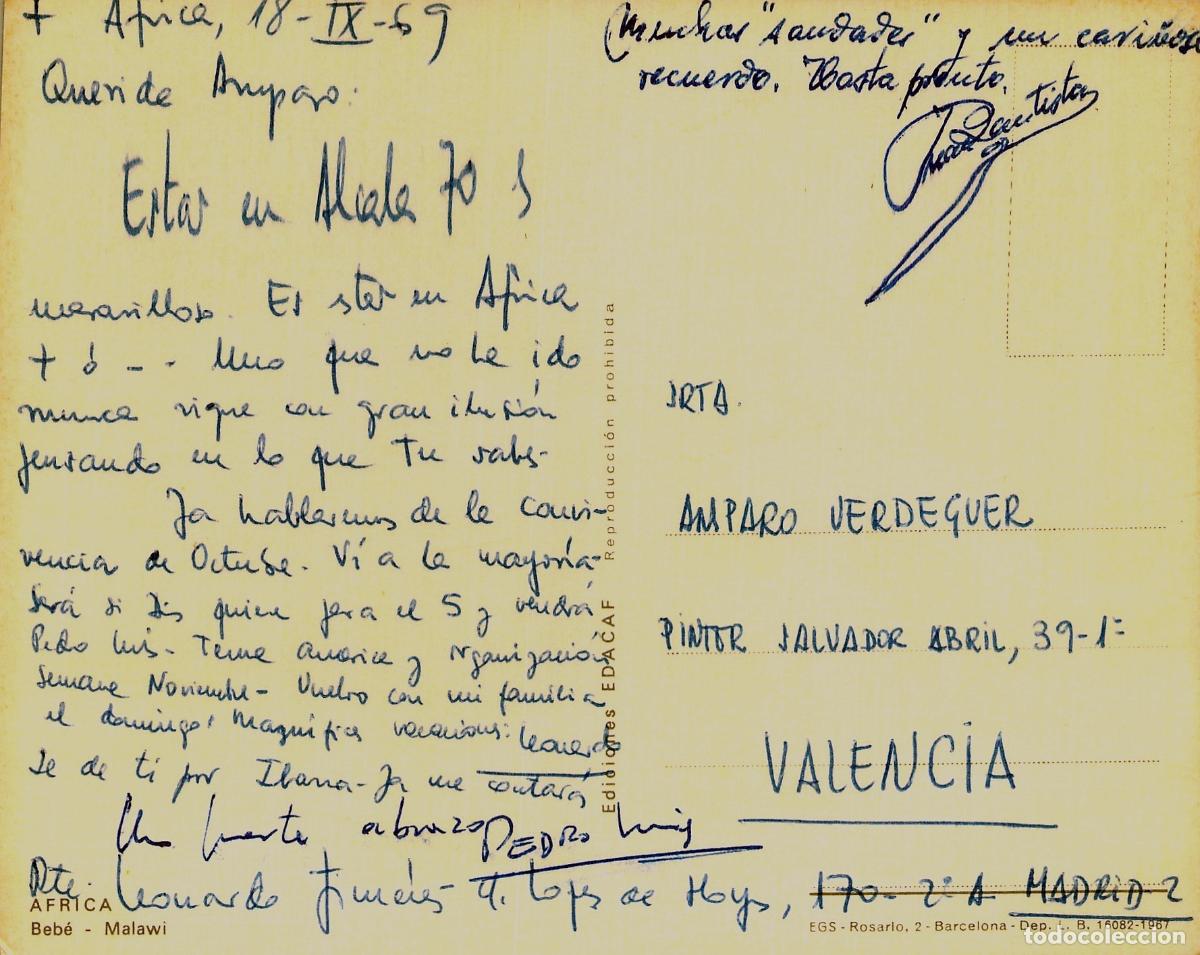 + Africa, 18-IX-69
Querida Amparo:
Estar en Alcala 70 S
maravilloso. Es star en Africa
+ ó - - Uno que no ha ido
nunca sigue con gran ilusión
pensando en lo que Tu sabes-
Ya hablaremos de la convi-
vencia de Octubre. Ví a la mayoría-
Será si Dios quiere para el 5 y vendrá
Pedro Luis- Tema america y organización
Semana Noviembre- Vuelvo con mi familia
el domingo. Magníficas vacaciones: Leonardo
Se de ti por Ibarra- Ya me contarás
Un fuerte abrazo PEDRO Luis
Rte. Leonardo Jiménez- Lopez de Hoyos, 170- 2º A MADRID-2
AFRICA
Bebé - Malawi
Ediciones EDACAF Reproducción prohibida
Muchas "saudades" y un cariñoso
recuerdo. Hasta pronto.
Juan Bautista
SRTA.
AMPARO VERDEGUER
PINTOR SALVADOR ABRIL, 39-1ª
VALENCIA
EGS - Rosario, 2 - Barcelona - Dep. L. B. 16082-1967
todocoleccion